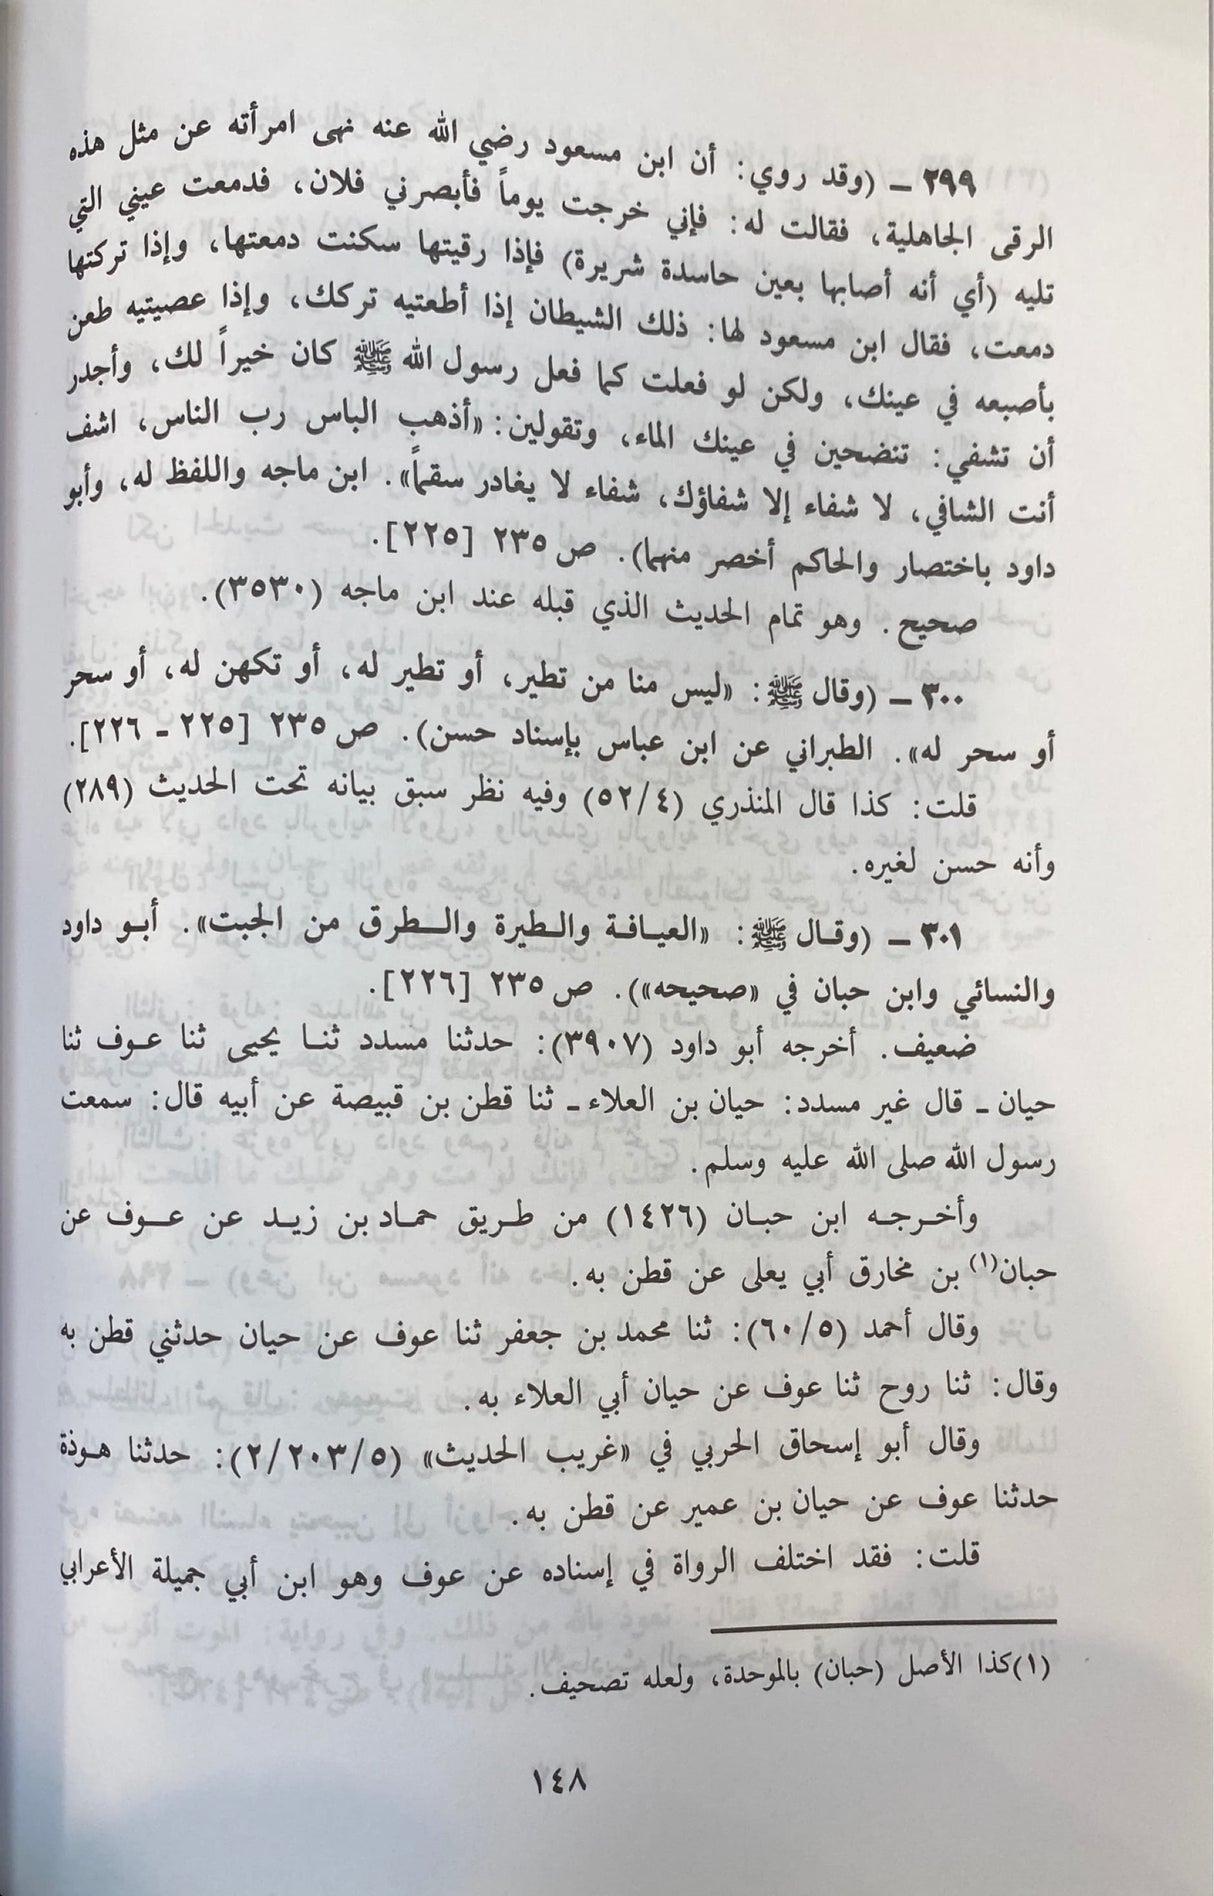 ٢٩٩ – (وقد روي: أن ابن مسعود رضي الله عنه نهى امرأته عن مثل هذه
الرقى الجاهلية، فقالت له: فإني خرجت يوماً فأبصرني فلان، فدمعت عيني التي
تليه (أي أنه أصابها بعين حاسدة شريرة) فإذا رقيتها سكنت دمعتها، وإذا تركتها
دمعت، فقال ابن مسعود لها: ذلك الشيطان إذا أطعتيه تركك، وإذا عصيتيه طعن
بأصبعه في عينك، ولكن لو فعلت كما فعل رسول الله ﷺ كان خيراً لك، وأجدر
أن تشفي: تنضحين في عينك الماء، وتقولين: «أذهب الباس رب الناس، اشف
أنت الشافي، لا شفاء إلا شفاؤك، شفاء لا يغادر سقماً». ابن ماجه واللفظ له، وأبو
داود باختصار والحاكم أخصر منهما). ص ٢٣٥ [٢٢٥].
صحيح. وهو تمام الحديث الذي قبله عند ابن ماجه (٣٥٣٠).
٣٠٠ – (وقال ﷺ: «ليس منا من تطير، أو تطير له، أو تكهن له، أو سحر
أو سحر له». الطبراني عن ابن عباس بإسناد حسن). ص ٢٣٥ [٢٢٥ ـ ٢٢٦].
قلت: كذا قال المنذري (٥٢/٤) وفيه نظر سبق بيانه تحت الحديث (٢٨٩)
وأنه حسن لغيره.
٣٠١ – (وقال ﷺ: «العيافة والطيرة والطرق من الجبت». أبو داود
والنسائي وابن حبان في «صحيحه»). ص ٢٣٥ [٢٢٦].
ضعيف. أخرجه أبو داود (٣٩٠٧): حدثنا مسدد ثنا يحيى ثنا عوف ثنا
حيان ـ قال غير مسدد: حيان بن العلاء ـ ثنا قطن بن قبيصة عن أبيه قال: سمعت
رسول الله صلى الله عليه وسلم.
وأخرجه ابن حبان (١٤٢٦) من طريق حماد بن زيد عن عوف عن
حبان(١) بن مخارق أبي يعلى عن قطن به.
وقال أحمد (٦٠/٥): ثنا محمد بن جعفر ثنا عوف عن حيان حدثني قطن به
وقال: ثنا روح ثنا عوف عن حيان أبي العلاء به.
وقال أبو إسحاق الحربي في «غريب الحديث» (٢/٢٠٣/٥): حدثنا هوذة
حدثنا عوف عن حيان بن عمير عن قطن به.
قلت: فقد اختلف الرواة في إسناده عن عوف وهو ابن أبي جميلة الأعرابي
(١) كذا الأصل (حبان) بالموحدة، ولعله تصحيف.
١٤٨